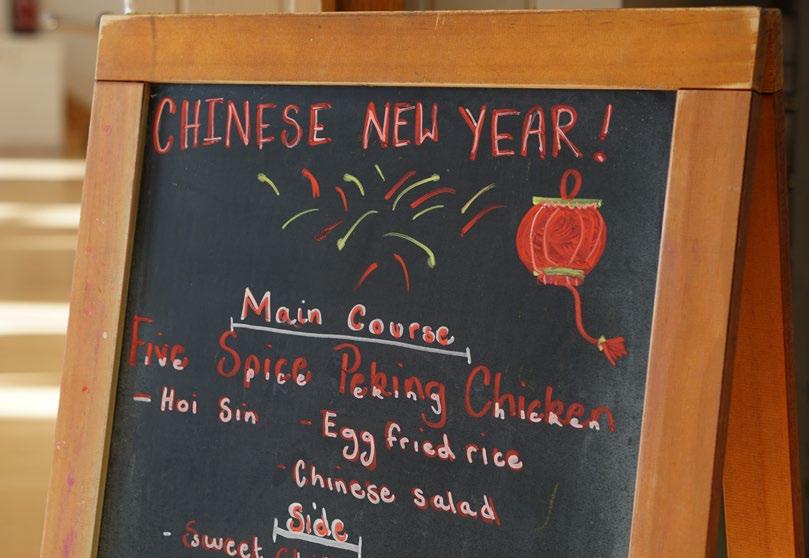 CHINESE NEW YEAR!
Main Course
Five Spice Peking Chicken
- Hoi Sin - Egg fried rice
- Chinese salad
Side
- Sweet